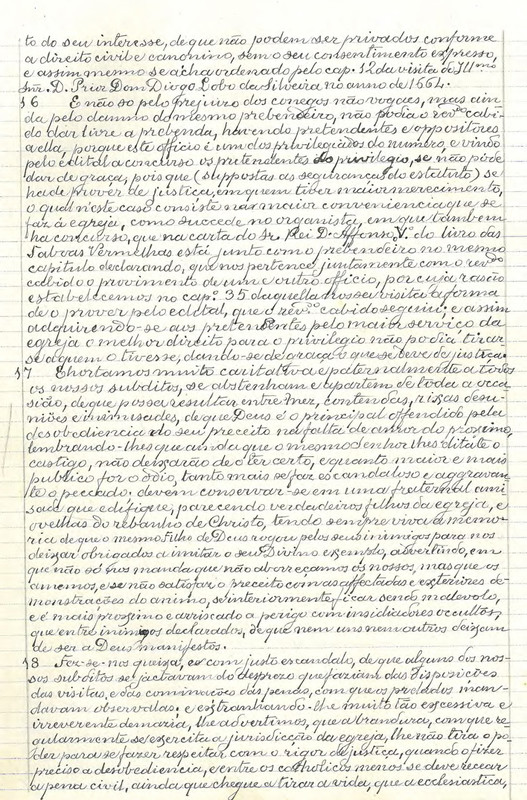 to do seu interesse, de que não podem ser privados conforme
a direito civil e canonino, sem o seu consentimento expresso,
e assim mesmo se acha ordenado pelo cap. 12 da visita do Ill.mo
Snr. D. Prior Dom Diogo Lobo da Silveira no anno de 1664.
16 E não só pelo prejuizo dos conegos não vogaes, mas ain
da pelo damno do mesmo prebendeiro, não podia o rev.do cabi
do dar livre a prebenda, havendo pretendentes e oppositores
a ella, porque este officio é um dos privilegiados do numero, e vindo
pelo edital a concurso os pretendentes do privilegio, se não póde
dar de graça, pois que (suppostas as seguranças do estatuto) se
ha de prover de justiça, em quem tiver maior merecimento,
o qual n'este caso consiste na maior conveniencia que se
faz á egreja, como succede no organista, em que tambem
ha concurso, que na carta do Sr. Rei D. Affonso V.º do livro das
Taboas Vermelhas está junto com o prebendeiro no mesmo
capitulo declarando, que nos pertence juntamente com o rev.do
cabido o provimento de um e outro officio, por cuja rasão
estabelecemos no cap.º 35 daquella nossa visita a forma
de o prover pelo edital, que o rev.do cabido seguiu: e assim
adquirindo-se aos pretendentes pelo maior serviço da
egreja o melhor direito para o privilegio não podia tirar-
se a quem o tivesse, dando-se de graça o que se deve de justiça.
17 Exhortamos muito caritativa e paternalmente a todos
os nossos subditos, se abstenham e apartem de toda a occa
sião, de que possa resultar entre si, contendas, rixas desu-
niões e inimisades, de que Deus é o principal offendido pela
desobediencia do seu preceito na falta de amor do proximo,
lembrando-lhes que ainda que o mesmo Senhor lhes dilate o
castigo, não deixarão de o ter certo, e quanto maior e mais
publico for o odio, tanto mais se faz escandaloso e aggravan-
te o peccado. devem conservar-se em uma fraternal ami
sade que edifique, parecendo verdadeiros filhos da egreja, e
ovelhas do rebanho de Christo, tendo sempre viva a memo-
ria de que o mesmo Filho de Deus rogou pelos seus inimigos para nos
deixar obrigados a imitar o seu Divino exemplo, advertindo, em
que não só nos manda que não aborreçamos os nossos, mas que os
amemos, e se não satisfaz o preceito com as affectadas e exteriores de-
monstrações do animo, se interiormente ficar sendo malevolo,
e é mais proximo e arriscado a perigo com insidiadores occultos,
que entre inimigos declarados, de que nem uns nem outros deixam
de ser a Deus manifestos.
18 Fez-se-nos queixa, e com justo escandalo, de que alguns dos nos-
sos subditos se jactavam do desprezo que faziam das disposições
das visitas, e das cominações das penas, com que os prelados man-
davam observal-as. e estranhando-lhe muito tão excessiva e
irreverente demazia, lhe advertimos, que a brandura, com que re
gularmente se exercita a jurisdicção da egreja, lhe não tira o po-
der para se fazer respeitar com o rigor de justiça, quando o fizer
preciso a desobediencia, e entre os catholicos menos se deve recear
a pena civil, ainda que chegue a tirar a vida, que a ecclesiastica,